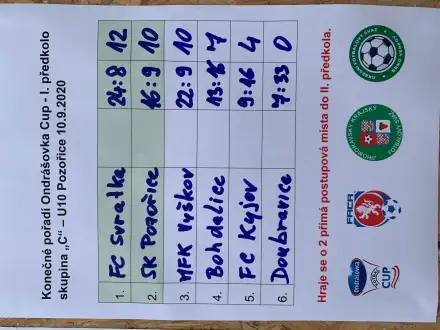 Konečné pořadí Ondrášovka Cup - I. předkolo
skupina „C" – U10 Pozořice 10.9.2020
1. FC Svratka 24:8 12
2. SK Pozořice 16:9 10
3. MFK Vyškov 22:9 10
4. Bohdalice 13:16 7
5. FC Kyjov 9:16 4
6. Doubravice 7:33 0
Hraje se o 2 přímá postupová místa do II. předkola.
FAČR
JIHOMORAVSKÝ KRAJSKÝ
FOTBALOVÝ SVAZ
OKRESNÍ FOTBALOVÝ SVAZ
Ondrášovka
CUP